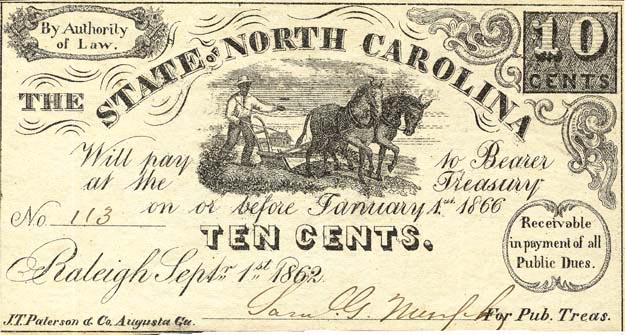 By Authority
of Law.
10
CENTS
THE STATE OF NORTH CAROLINA
Will pay to Bearer
at the Treasury
on or before January 1st. 1866
No. 113
TEN CENTS.
Receivable
in payment of all
Public Dues.
Raleigh Septr. 1st 1862
J.T. Paterson & Co. Augusta Ga.
For Pub. Treas.